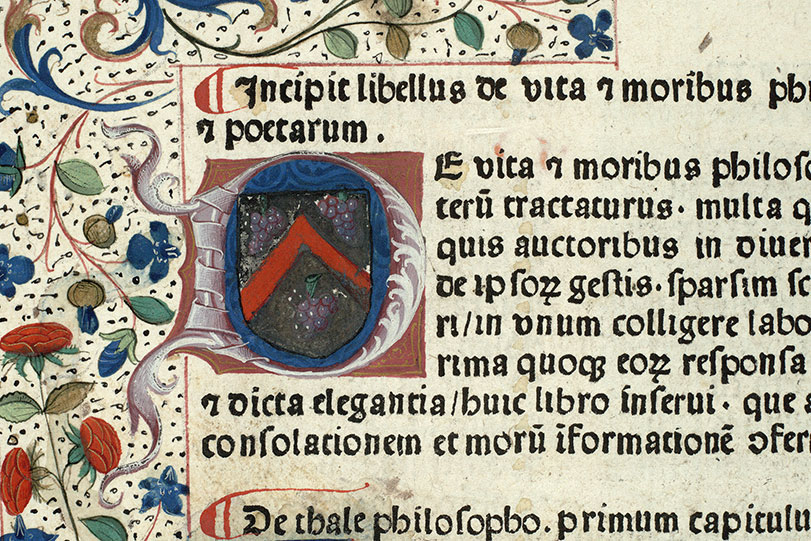 Incipit libellus de vita ⁊ moribus phi
⁊ poetarum .
DE vita ⁊ moribus philoſo
terū tractaturus · multa q
quis auctoribus in diuer
de ipſoꝝ geſtis · ſparſim ſc
ri/in vnum colligere labo
rima quoqꝫ eoꝝ reſponſa
⁊ dicta elegantia/huic libro inſerui · que a
conſolationem et morū īformationē ↄfer
De thale philoſopho . primum capitulu